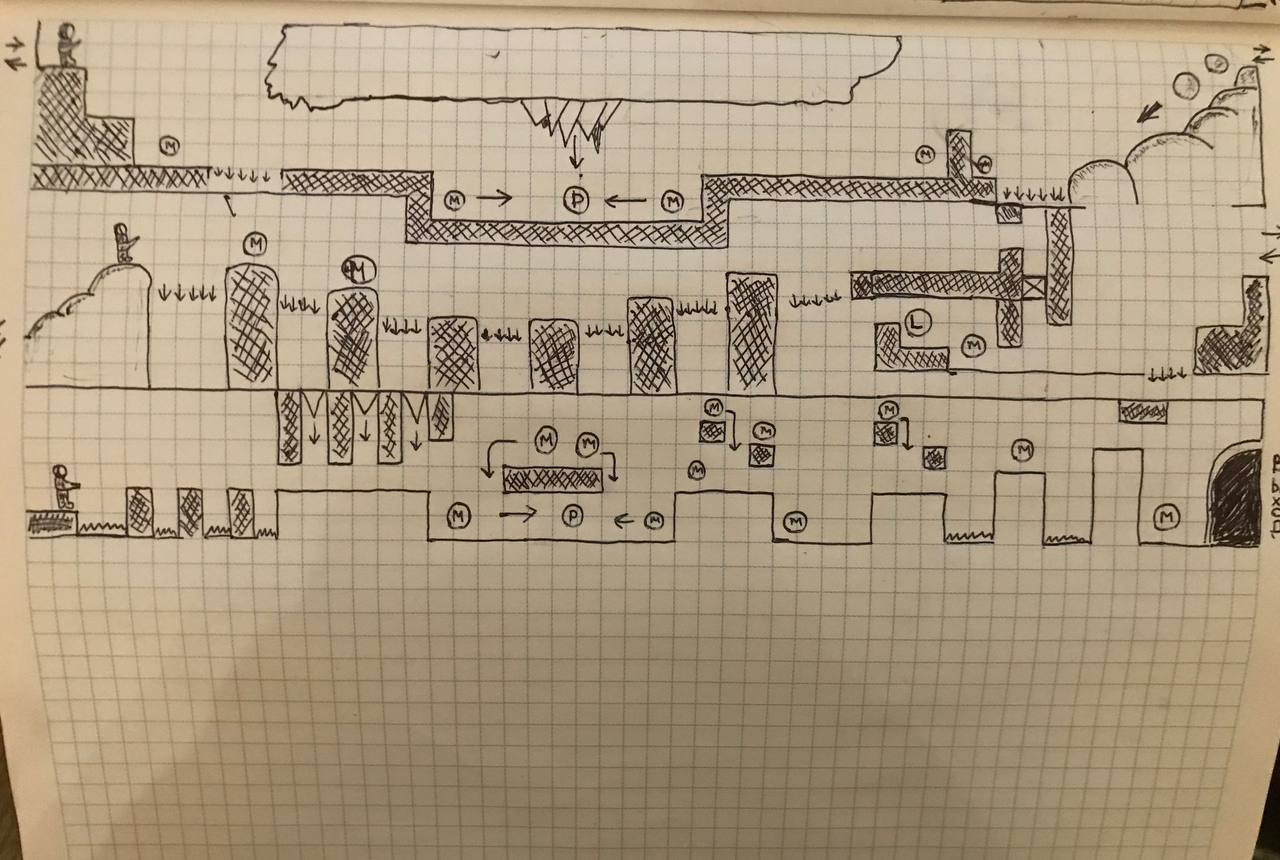 M M M
M P M
M
M
L
M
M M
M M M M
M
M P M M M